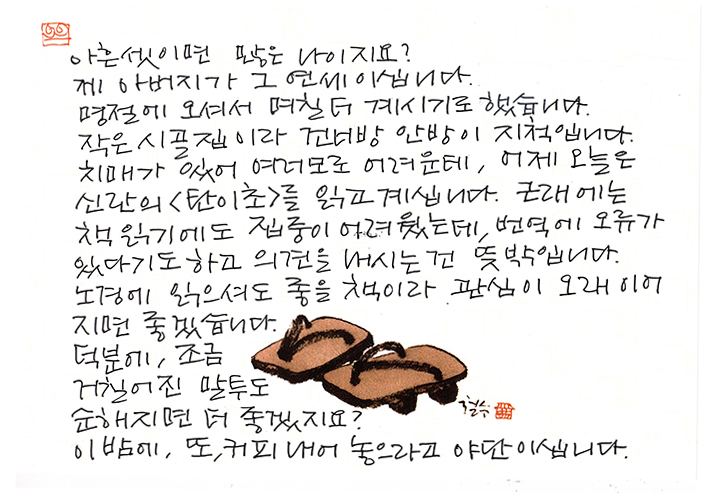 아흔셋이면 많은 나이지요?
제 아버지가 그 연세이십니다.
명절에 오셔서 며칠 더 계시기로 했습니다.
작은 시골집이라 건너방 안방이 지척입니다.
치매가 있어 여러모로 어려운데, 어제 오늘은
신란의 <탄이초>를 읽고 계십니다. 근래에는
책 읽기에도 집중이 어려웠는데, 번역에 오류가
있다기도 하고 의견을 내시는 건 뜻밖입니다.
노경에 읽으셔도 좋을 책이라 관심이 오래 이어
지면 좋겠습니다.
덕분에, 조금
거칠어진 말투도
순해지면 더 좋겠지요?
이밤에, 또, 커피 내어 놓으라고 야단이십니다.
철수